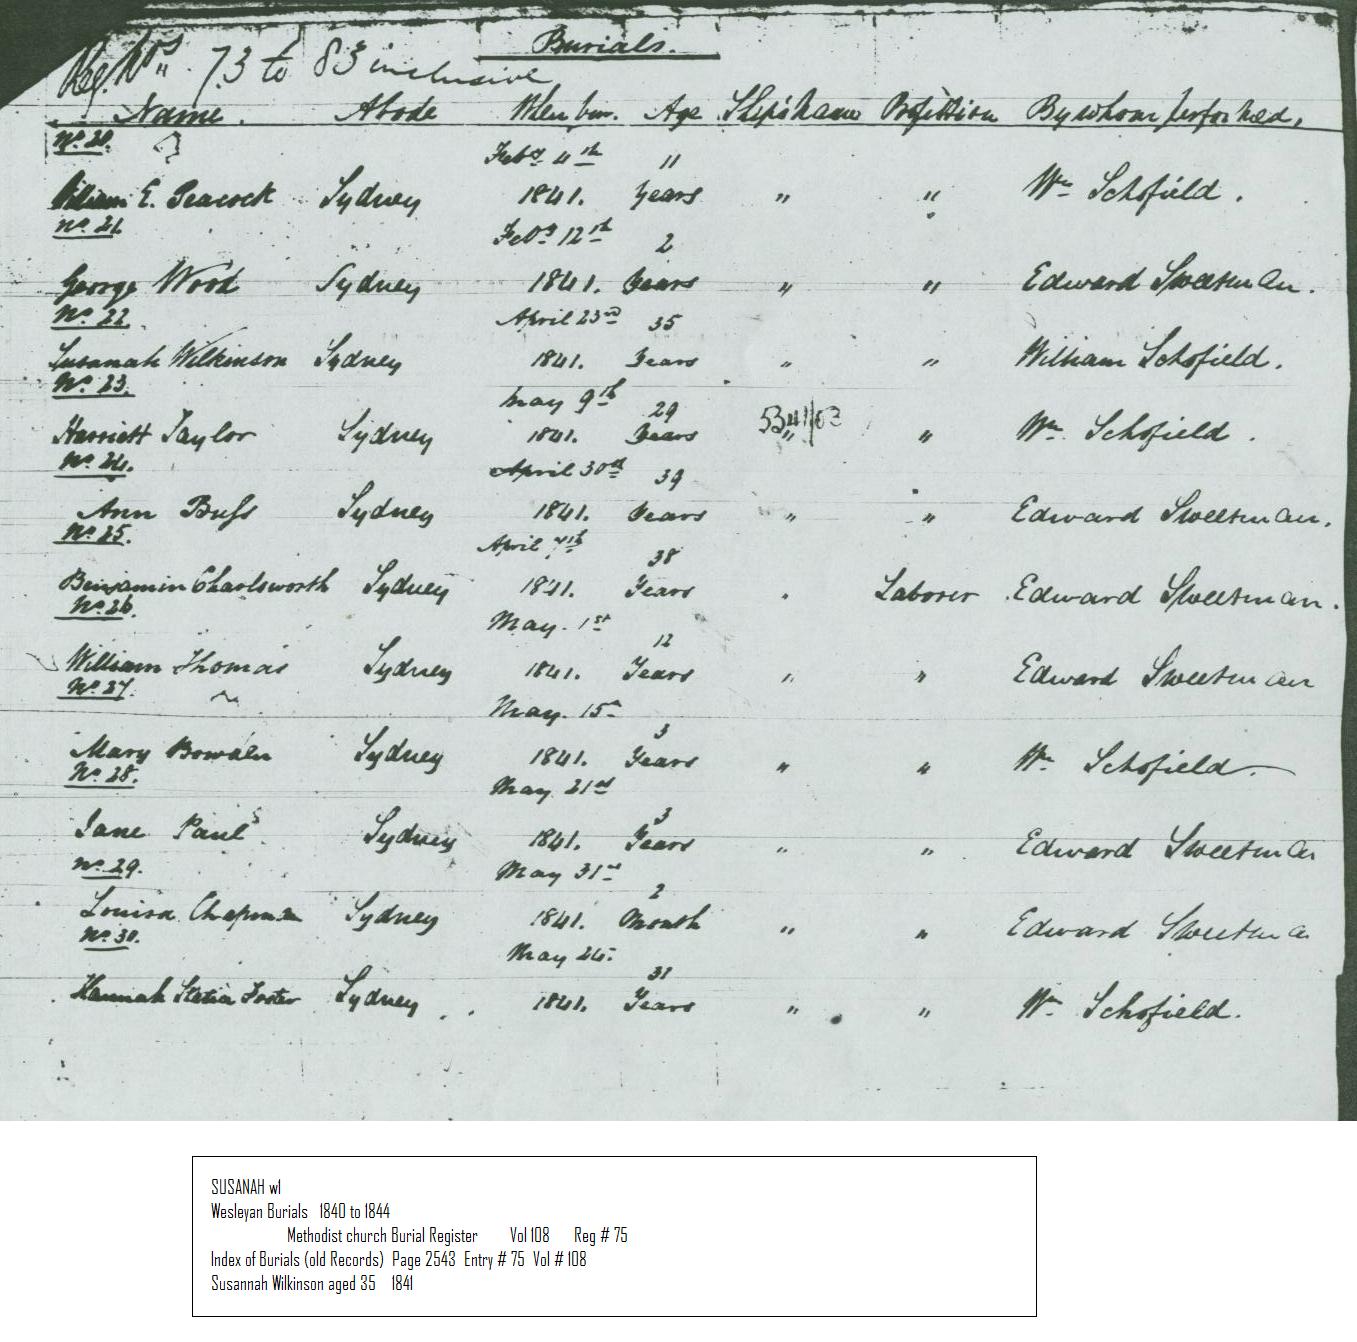 Burials.
Reg. Nos. 73 to 83 inclusive
Name. Abode When bur. Age Ships Name Profession By whom performed,
No. 20.
Feby 4th 11
William E. Peacock Sydney 1841. Years " " Wm Schofield.
No. 21
Feby 12th 2
George Wood Sydney 1841. Years " " Edward Sweetman.
No. 22.
April 23rd 35
Susanah Wilkinson Sydney 1841. Years " " William Schofield.
No. 23.
May 9th 29
Harriett Taylor Sydney 1841. Years " " Wm Schofield.
No. 24.
April 30th 39
Ann Buss Sydney 1841. Years " " Edward Sweetman.
No. 25.
April 7th 38
Benjamin Charlsworth Sydney 1841. Years " Laborer Edward Sweetman.
No. 26.
May. 1st 12
William Thomas Sydney 1841. Years " " Edward Sweetman
No. 27.
May. 15th 3
Mary Bowden Sydney 1841. Years " " Wm Schofield.
No. 28.
May 21st 3
Jane Paul Sydney 1841. Years " " Edward Sweetman
No. 29.
May 31st 2
Louisa Chapman Sydney 1841. Month " " Edward Sweetman
No. 30.
May 24. 31
Hannah Foster Sydney 1841. Years " " Wm Schofield.
SUSANAH w1
Wesleyan Burials 1840 to 1844
Methodist church Burial Register Vol 108 Reg # 75
Index of Burials (old Records) Page 2543 Entry # 75 Vol # 108
Susannah Wilkinson aged 35 1841